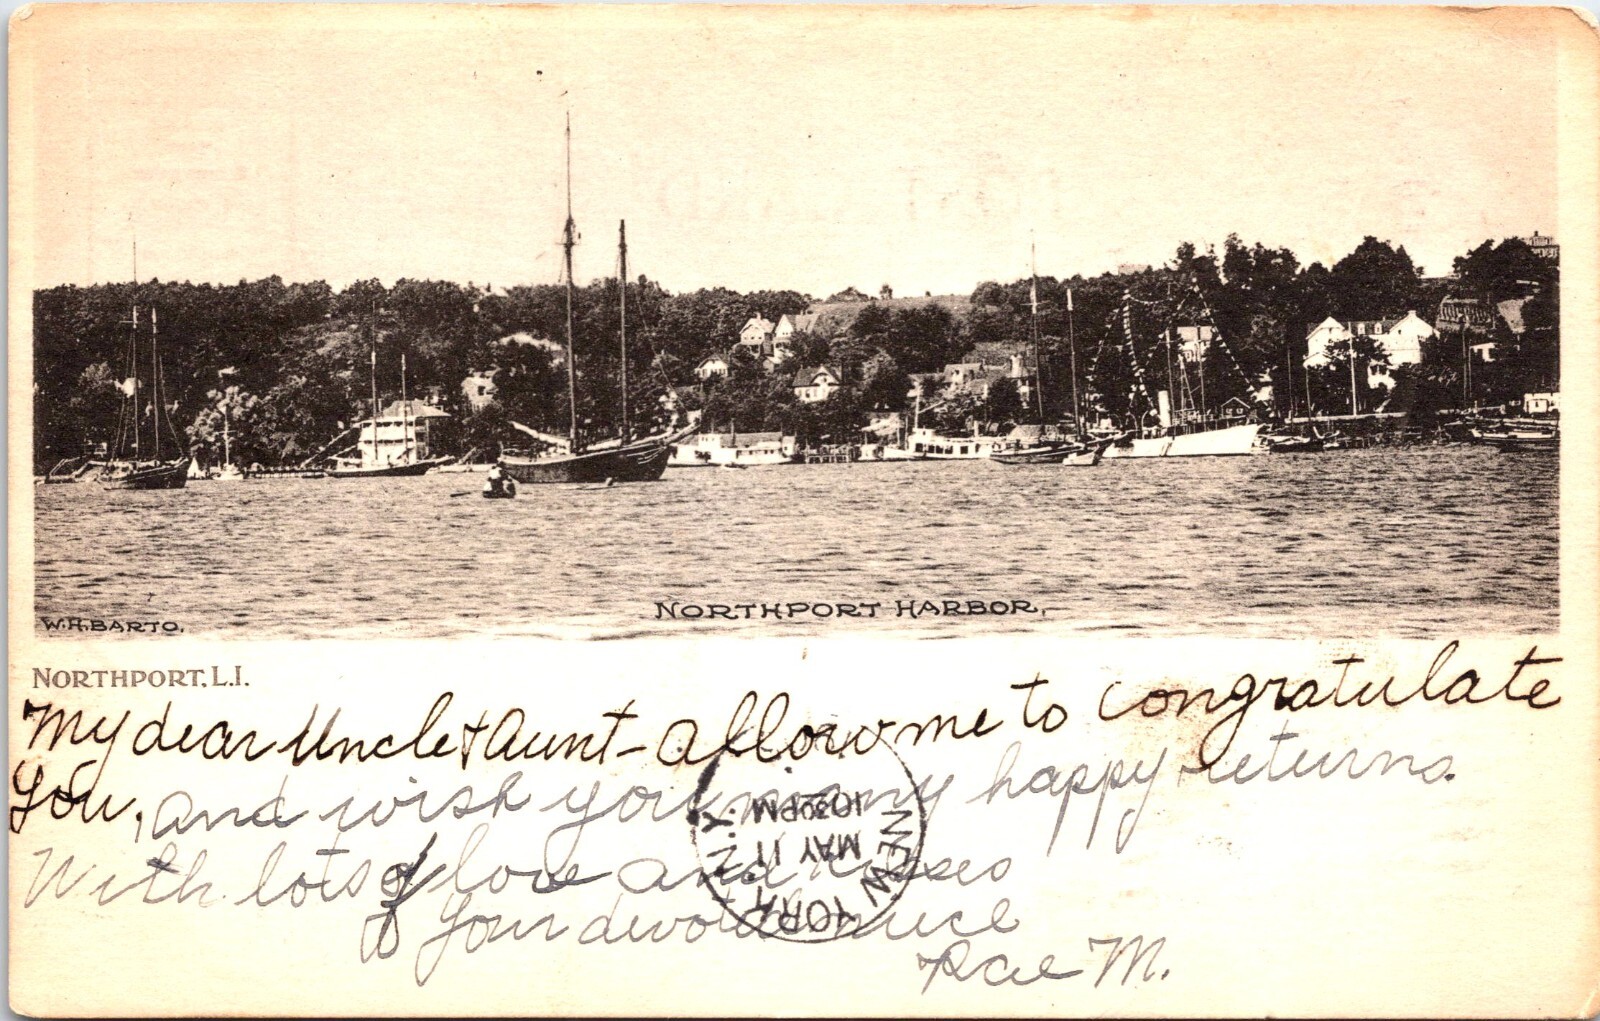 W.H.BARTO.
NORTHPORT HARBOR.
NORTHPORT, L.I.
My dear Uncle & Aunt – allow me to congratulate
you, and wish you many happy returns.
With lots of love and kisses
Your devoted niece
Rae M.
NEW YORK, N.Y.
MAY 11
1030PM